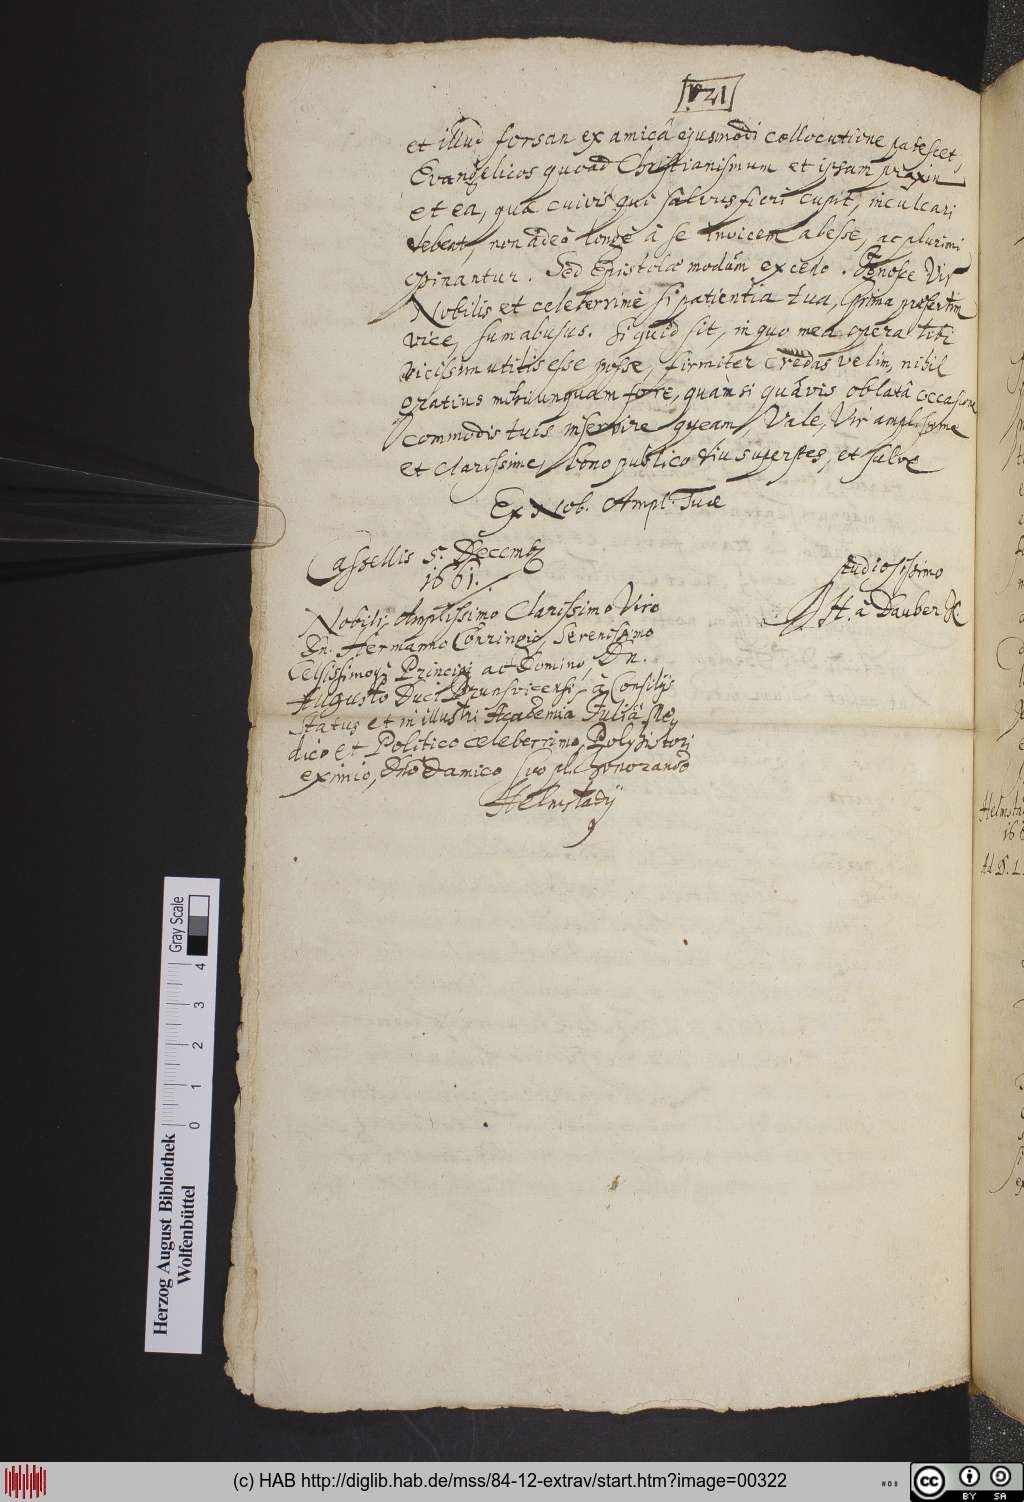 et illud forsan ex amicâ ejusmodi collocutione patescet,
Evangelicos quoad Christianismum et ipsam praxin
et ea, quae cuivis qui salvus fieri cupit, inculcari
debent, non adeò longè â se invicem abesse, ac plurimi
opinantur. Sed Epistolae modum excedo. Ignosce Vir
Nobilis et celeberrime si patientia tua, prima praesertim
vice, sum abusus. Si quid sit, in quo mea opera tibi
vicissim utilis esse posse, firmiter credas velim, nihil
gratius mihi unquam fore, quàm si quâvis oblatâ occasione
commodis tuis inservire queam. Vale, Vir amplissime
et clarissime, bono publico diu superstes, et salve
Ex Nob. Ampl. Tuae
Cassellis 5. Decemb.
1661.
studiosissimo
H. à Dauber
Nobili, Amplissimo Clarissimo Viro
Dn. Hermanno Conringio Serenissimo
Celsissimoq; Principi ac Domino, Dn.
Augusto Duci Brunsvicensi, â Consilijs
Status et in illustri Academia Juliâ Me-
dico et Politico celeberrimo, Polyhistori
eximio, Dno et amico suo pl. honorando
Helmstadij
Helmsta
166
Ad D. L
Gray Scale
0 1 2 3 4
Herzog August Bibliothek
Wolfenbüttel
(c) HAB http://diglib.hab.de/mss/84-12-extrav/start.htm?image=00322
WDB
cc BY SA